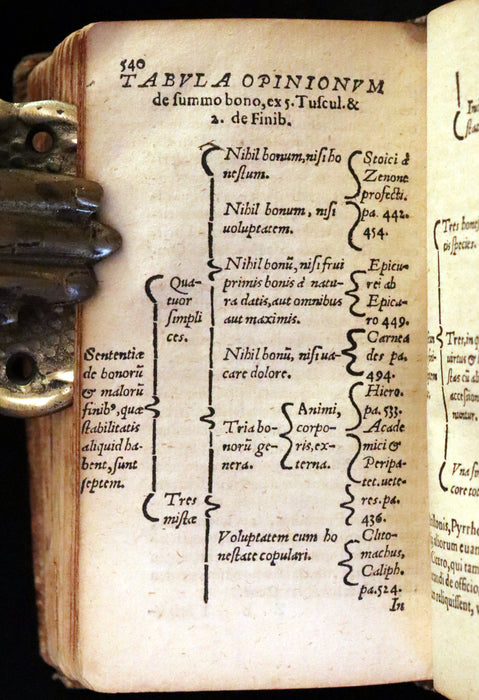 540
TABVLA OPINIONVM
de summo bono, ex 5. Tuscul. &
2. de Finib.
Sententiæ
de bonorū
& malorū
finibº, quæ
stabilitatis
aliquid ha-
bent, sunt
septem.
Qua-
tuor
simpli
ces.
Nihil bonum, nisi ho
nestum.
Stoici à
Zenone
profecti.
pa. 442.
Nihil bonum, nisi
voluptatem.
454.
Nihil bonū, nisi frui
primis bonis à natu-
ra datis, aut omnibus
aut maximis.
Epicu-
rei ab
Epicu-
ro 449.
Nihil bonū, nisi va-
care dolore.
Carnea
des pa.
494.
Hiero.
pa. 533.
Tres
mistæ
Tria bo-
norū ge-
nera.
Animi,
corpo-
ris, ex-
terna.
Acade
mici &
Peripa-
tet. vete-
res. pa.
436.
Voluptatem cum ho
nestate copulari.
Clito-
machus,
Caliph.
pa. 524.
In
Tres
tis species.
Tres, in
virtus &
accession
Vna
core
Pyrrho
aliorum
Cicero, qui
de officio
reliquissent,